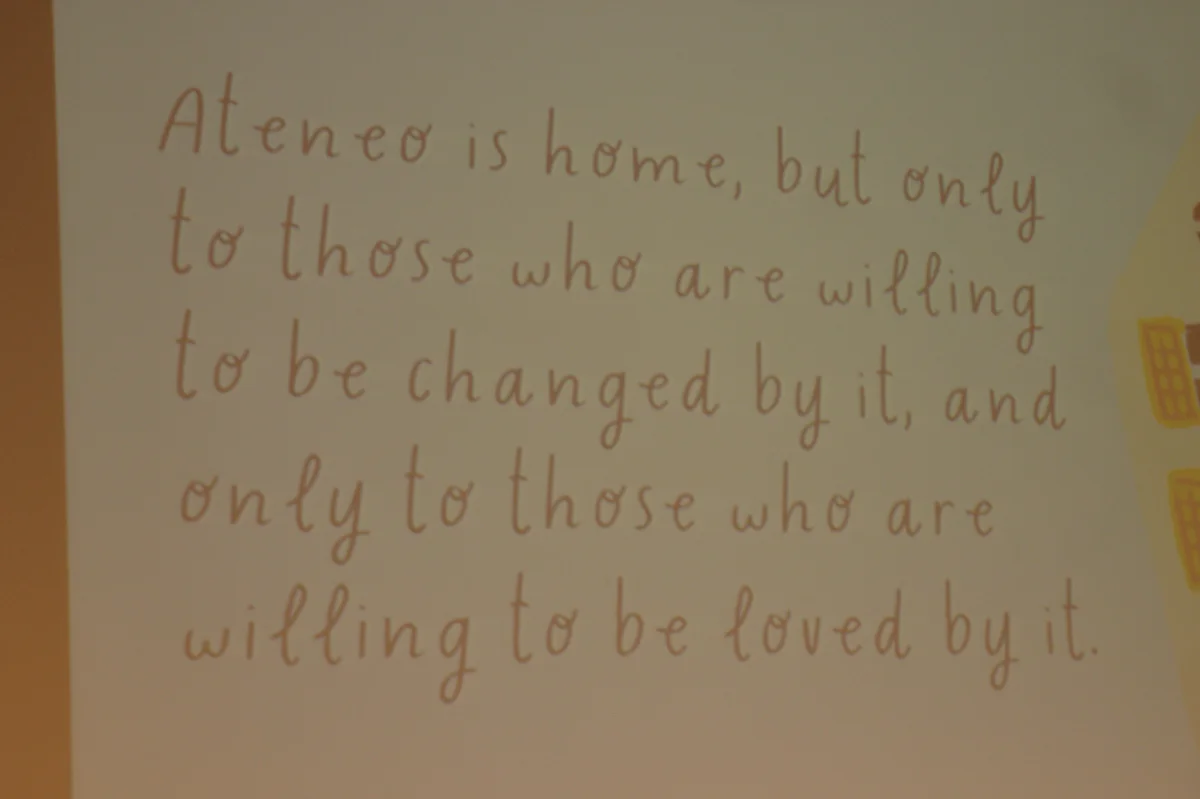 Ateneo is home, but only
to those who are willing
to be changed by it, and
only to those who are
willing to be loved by it.